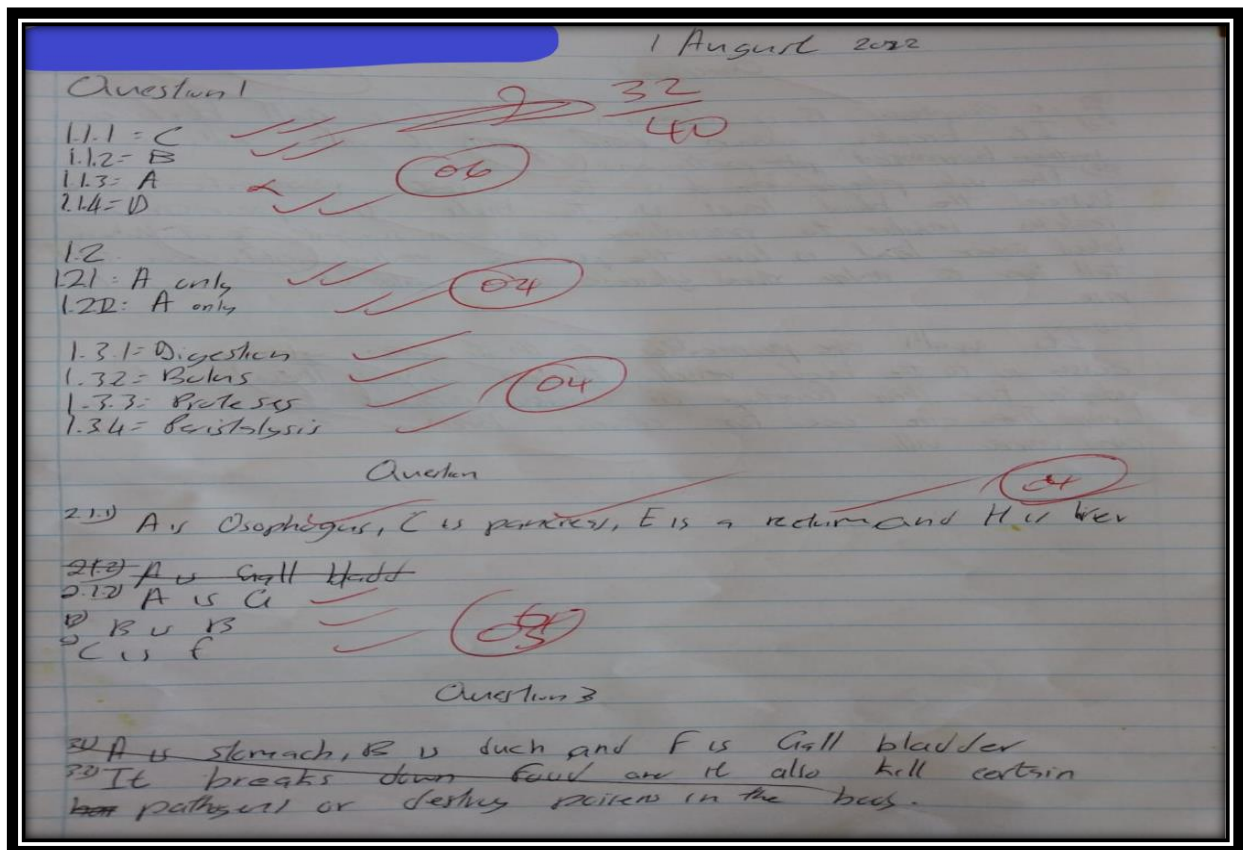 1 August 2022
Question 1
32
40
1.1.1 = C
1.1.2 = B
1.1.3 = A
06
1.1.4 = D
1.2
1.2.1 = A only
04
1.2.2: A only
1.3.1 = Digestion
1.3.2 = Bolus
04
1.3.3 = Proteses
1.3.4 = Peristalysis
Question
04
2.1.1) A is Osophogus, C is pancress, E is a rectum and H is liver
2.1.2) A is Gall bladd
2.1.2) A is G
B is B
C is f
Question 3
3.1) A is stomach, B is duch and F is Gall bladder
It breaks down food and it also kill certain
pathgens or destroy in the body.